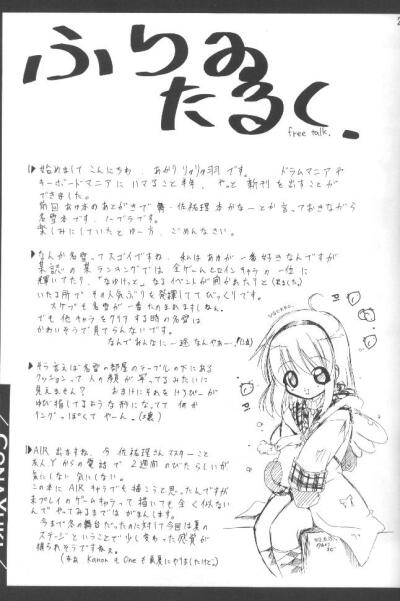 ふりゐ
たるく.
free talk.
始めまして こんにちわ、あかり りゅりゅ羽 です。 ドラムマニア や
キーボードマニア に ハマること 半年、やっと 新刊 を 出すこと が
できました。
前回 あゆ本 の あとがき で 舞・佐祐理 本 か なーとか 言っておきながら
名雪本 です、ノーブラ です。
楽しみ に していた とゆー 方、ごめんなさい。
なんか 名雪 って スゴイ ですね、私は あゆ が 一番 好き なんですが
某誌 の 某 ランキング では 全ゲーム ヒロイン キャラ の 一位 に
輝いてたり、「なゆけっと」なる イベント が 開かれたり と
いたる所 で その 人気ぶり を 発揮してて びっくり です。
スケブ でも 名雪 が 一番 たのまれますしねぇ。
でも 他 キャラ を クリア する 時 の 名雪 は
かわいそう で 見てらんない です。
なんで みんな に 一途 なんやぁー
そう 言えば 名雪 の 部屋 の テーブル の 下 にある
クッション って 人 の 顔 が 写ってる みたい に
見えません？ おまけ に それ を けろぴー が
ゆび 指してる ような 形 に なってて 何か
リング っぽくて やーん。
AIR 出ますね、今 佐祐理さん マスター こと
友人 Y から の 電話 で 2週間 のびた らしいが
気にしない 気にしない。
この 本 に AIR キャラ でも 描こう と 思ったんですが
未プレイ の ゲーム キャラ って 描いてても 全く 似ない
んで やってみる まで は がまん します。
今まで 冬 の 舞台 だった のに 対して 今回 は 夏 の
ステージ と いうこと で 少し 変わった 感覚 が
得られそう ですねぇ
Kanon も One も 真夏 に やりました けど。